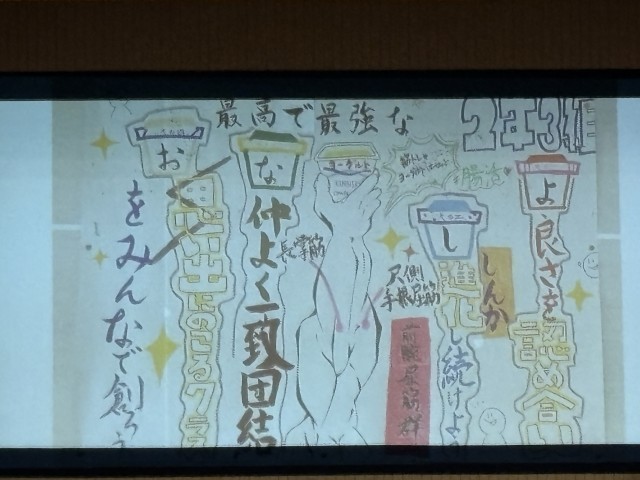 最高で最強な
2年3組
よ
良さを
認め合い
し
進化し続けよう
しんか
腸活
ヨーグルト
長掌筋
尺側
手根屈筋
前腕屈筋群
な
仲よく一致団結
お
思い出にのこるクラス
をみんなで創ろう